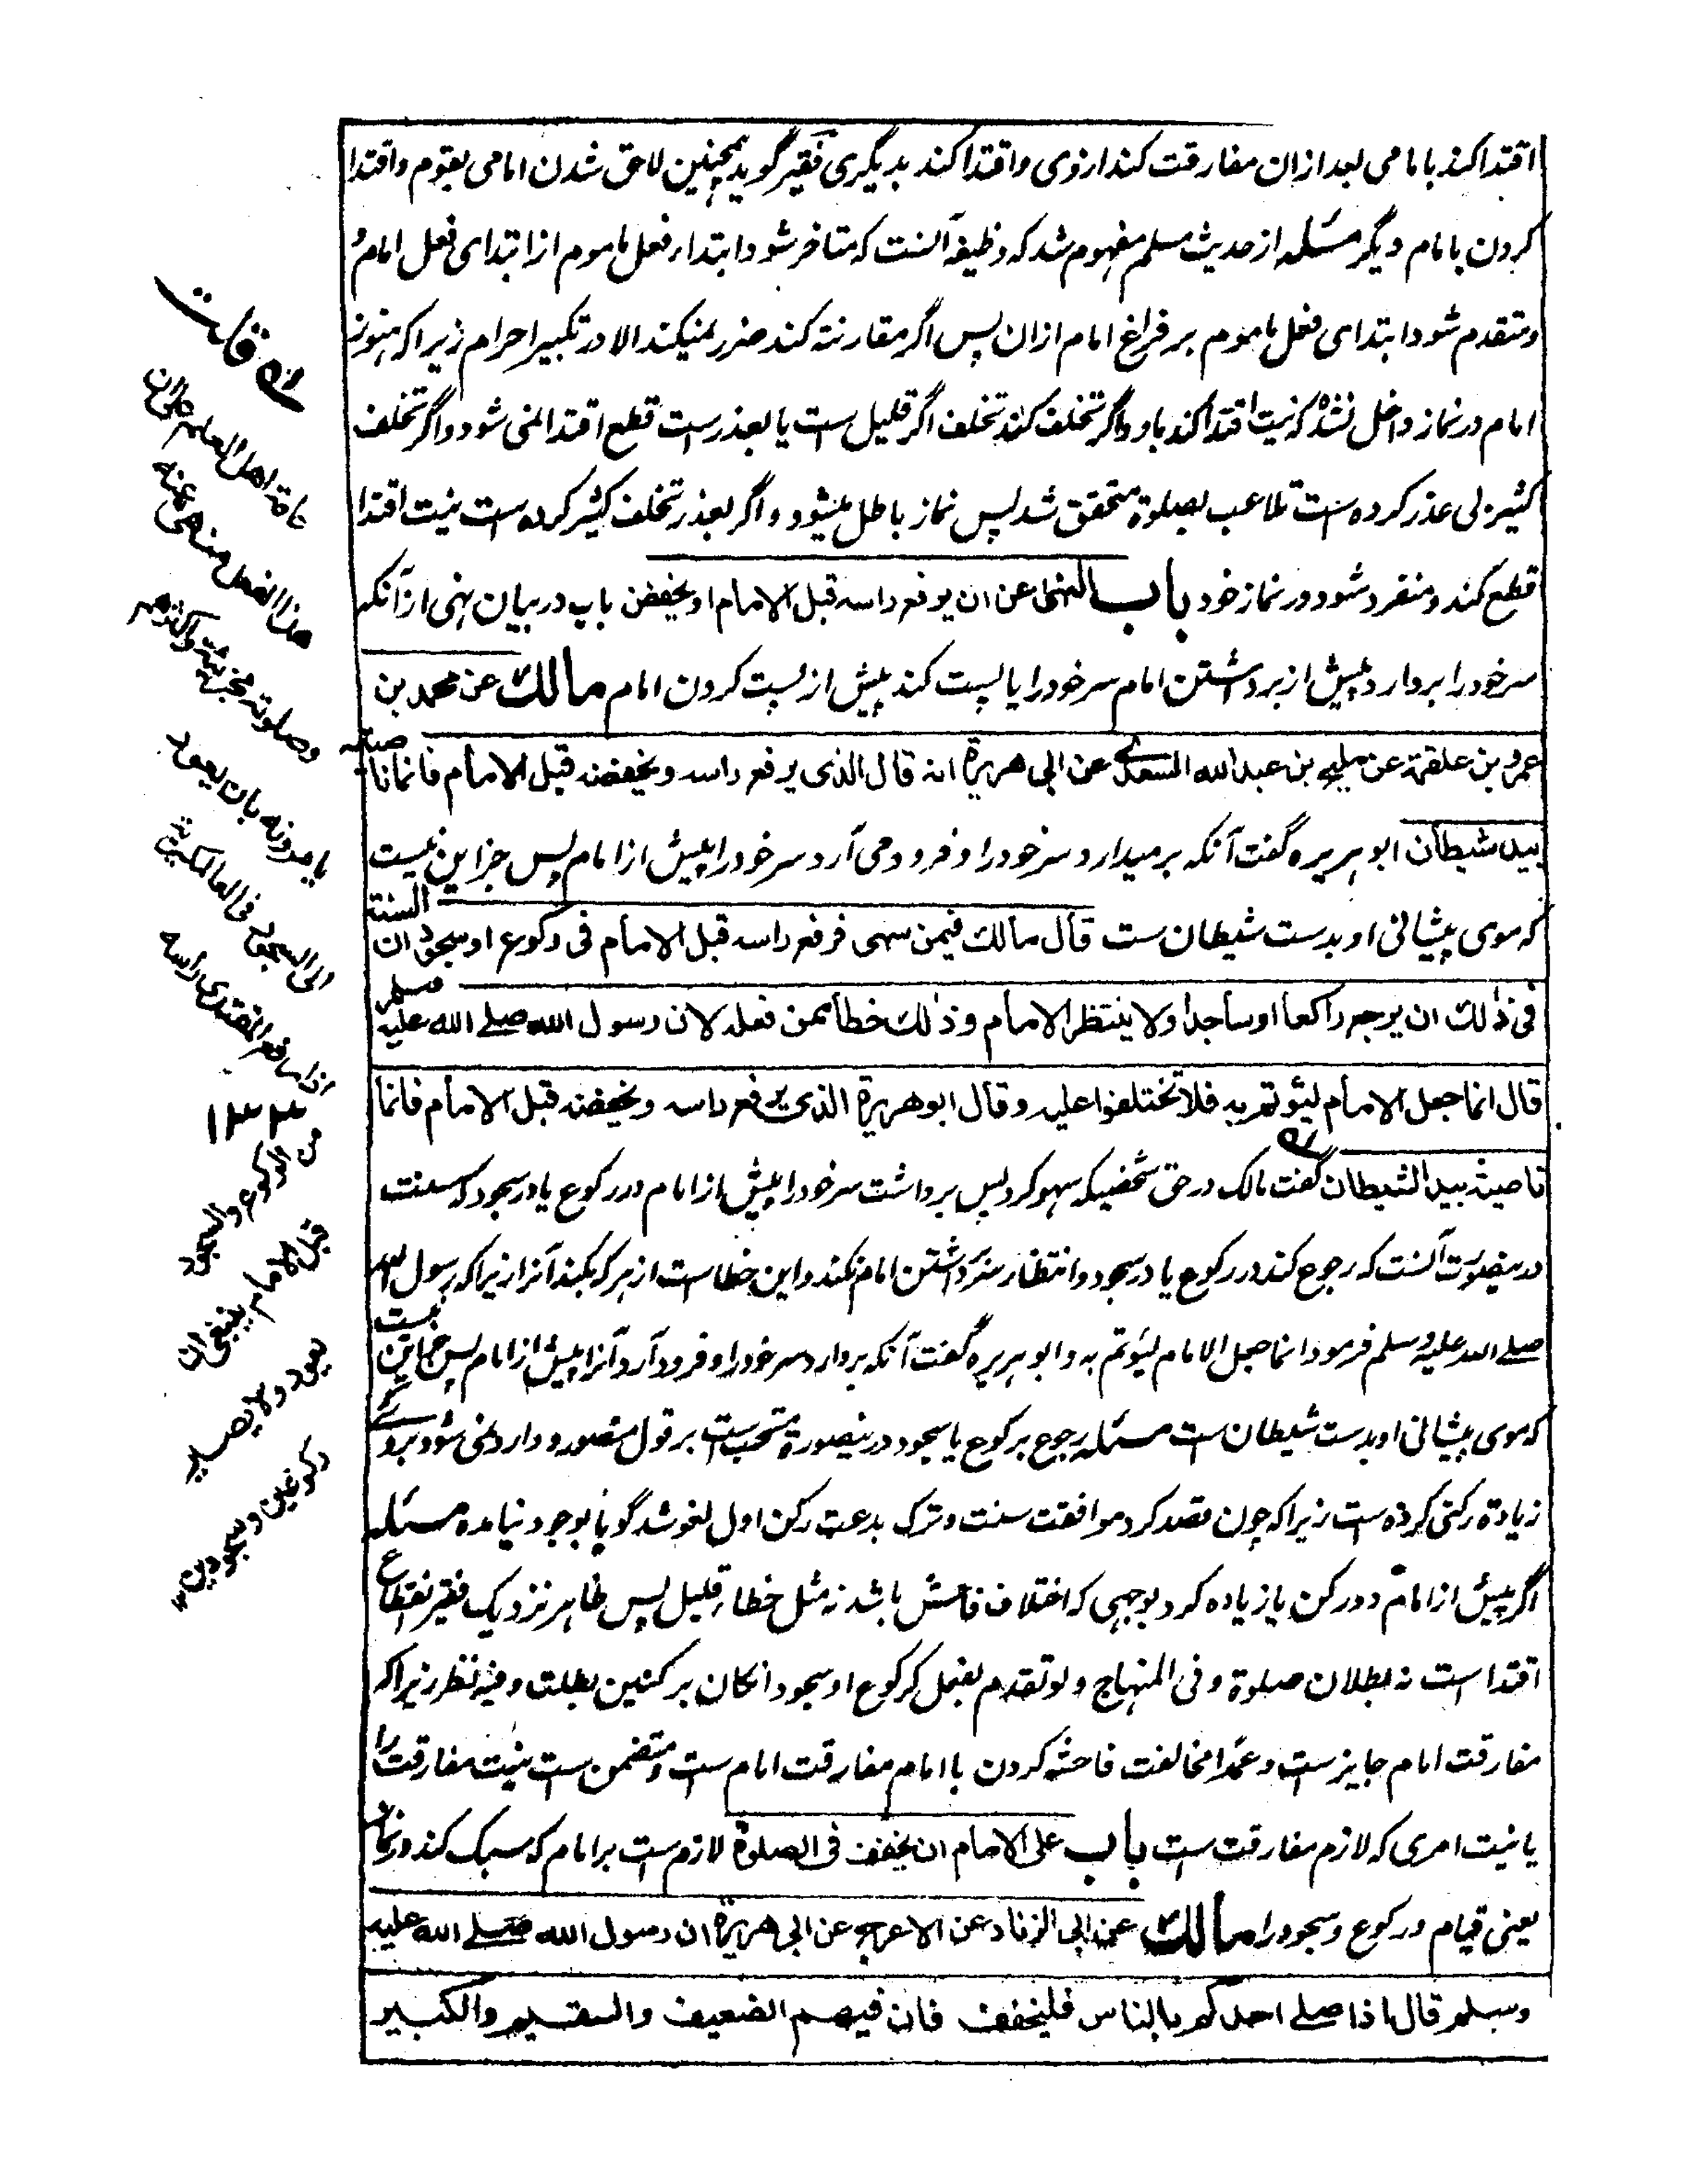 اقتدا کند بامامی بعد ازان مفارقت کند ازوی واقتدا کند بدیگری فقیر گوید همچنین لاحق شدن امامی بقوم واقتدا
کردن بامام دیگر مسئله از حدیث مسلم مفهوم شد که وظیفه آنست که متاخر شود ابتدار فعل ماموم از ابتدای فعل امام
ومتقدم شود ابتدای فعل ماموم بر فراغ امام ازان پس اگر مقارنة کند ضرر نمیکند الا در تکبیر احرام زیراکه هنوز
امام در نماز داخل نشده که نیت اقتدا کند باو واگر تخلف کند تخلف اگر قلیل ست یا بعذرست قطع اقتدا نمی شود واگر تخلف
کثیر بی عذر کرده است تلاعب بصلوة متحقق شد پس نماز باطل میشود واگر بعذر تخلف کثیر کرده ست نیت اقتدا
قطع کند ومنفرد شود در نماز خود باب النهی عن ان یرفع راسه قبل الامام او یخفض باب در بیان نهی از آنکه
سر خود را بردارد پیش از برداشتن امام سر خود را یا پست کند پیش از پست کردن امام مالك عن محمد بن
عمرو بن علقمة عن ملیح بن عبد الله السعدی عن ابی هریرة انه قال الذی یرفع راسه ویخفضه قبل الامام فانما ناصیته
بید شیطان ابو هریره گفت آنکه بر میدارد سر خود را و فرود می آرد سر خود را پیش از امام پس جز این نیست
که موی پیشانی او بدست شیطان ست قال مالك فیمن سهی فرفع راسه قبل الامام فی رکوع او سجود ان السنة
فی ذلك ان یرجع راکعا او ساجدا ولا ینتظر الامام وذلك خطأ ممن فعله لان رسول الله صلے الله علیه وسلم
قال انما جعل الامام لیؤتم به فلا تختلفوا علیه وقال ابو هریرة الذی یرفع راسه ویخفضه قبل الامام فانما
ناصیته بید الشیطان گفت مالک در حق شخصیکه سهو کرد پس برداشت سر خود را پیش از امام در رکوع یا در سجود که سنت
درینصورت آنست که رجوع کند در رکوع یا در سجود وانتظار سر برداشتن امام نکند واین خطا ست از هر که بکند آنرا زیراکه رسول الله
صلے الله علیه وسلم فرمود انما جعل الامام لیؤتم به وابو هریره گفت آنکه بردارد سر خود را و فرود آرد آنرا پیش از امام پس جز این نیست
که موی پیشانی او بدست شیطان ست مسئله رجوع برکوع یا سجود درینصورة مستحب ست بر قول منصور ودارد نمی شود بروے که
زیادة رکنی کرده ست زیراکه چون قصد کرد موافقت سنت وترک بدعت رکن اول لغو شد گویا بوجود نیامده مسئله
اگر پیش از امام دو رکن یا زیاده کرد بوجهی که اختلاف فاحش باشد نه مثل خطار قلیل پس ظاهر نزدیک فقیر انقطاع
اقتدا است نه بطلان صلوة وفی المنهاج ولو تقدم بفعل کرکوع او سجود ان کان برکنین بطلت وفیه نظر زیراکه
مفارقت امام جایز ست وعمدا مخالفت فاحشه کردن با امام مفارقت امام ست ومتضمن ست نیت مفارقت را
یا نیت امری که لازم مفارقت ست باب علی الامام ان یخفف فی الصلوة لازم ست بر امام که سبک کند در نماز
یعنی قیام ورکوع وسجود را مالك عن ابی الزناد عن الاعرج عن ابی هریرة ان رسول الله صلے الله علیه
وسلم قال اذا صلے احدکم بالناس فلیخفف فان فیهم الضعیف والسقیم والکبیر
قلت
عامة اهل العلم علی ان
هذا الفعل منهی عنه
وصلوته مجزئة واکثرهم
یامرونه بان یعود
الی السجود فی العالمگیریة
اذا رفع المقتدی راسه
۱۲
من الرکوع والسجود
قبل الامام ینبغی ان
یعود ولا یصیر
رکوعین وسجودین